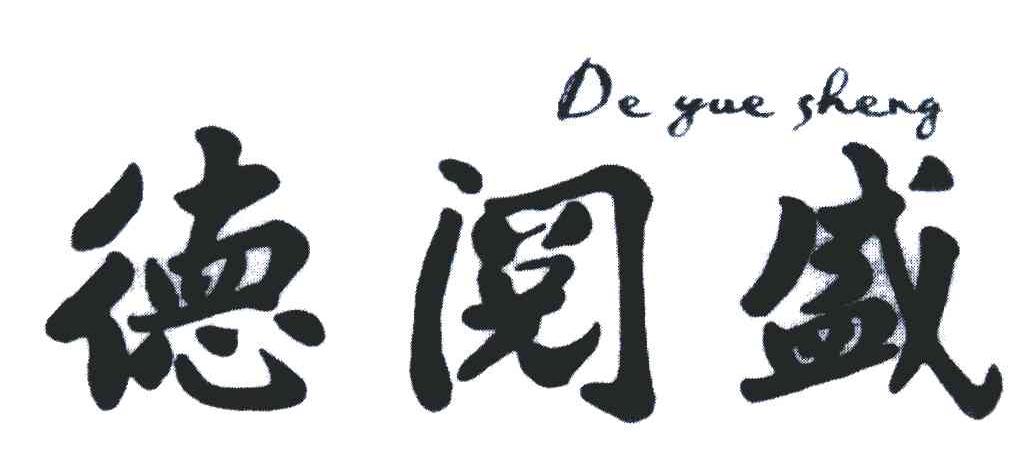 De yue sheng
德阅盛